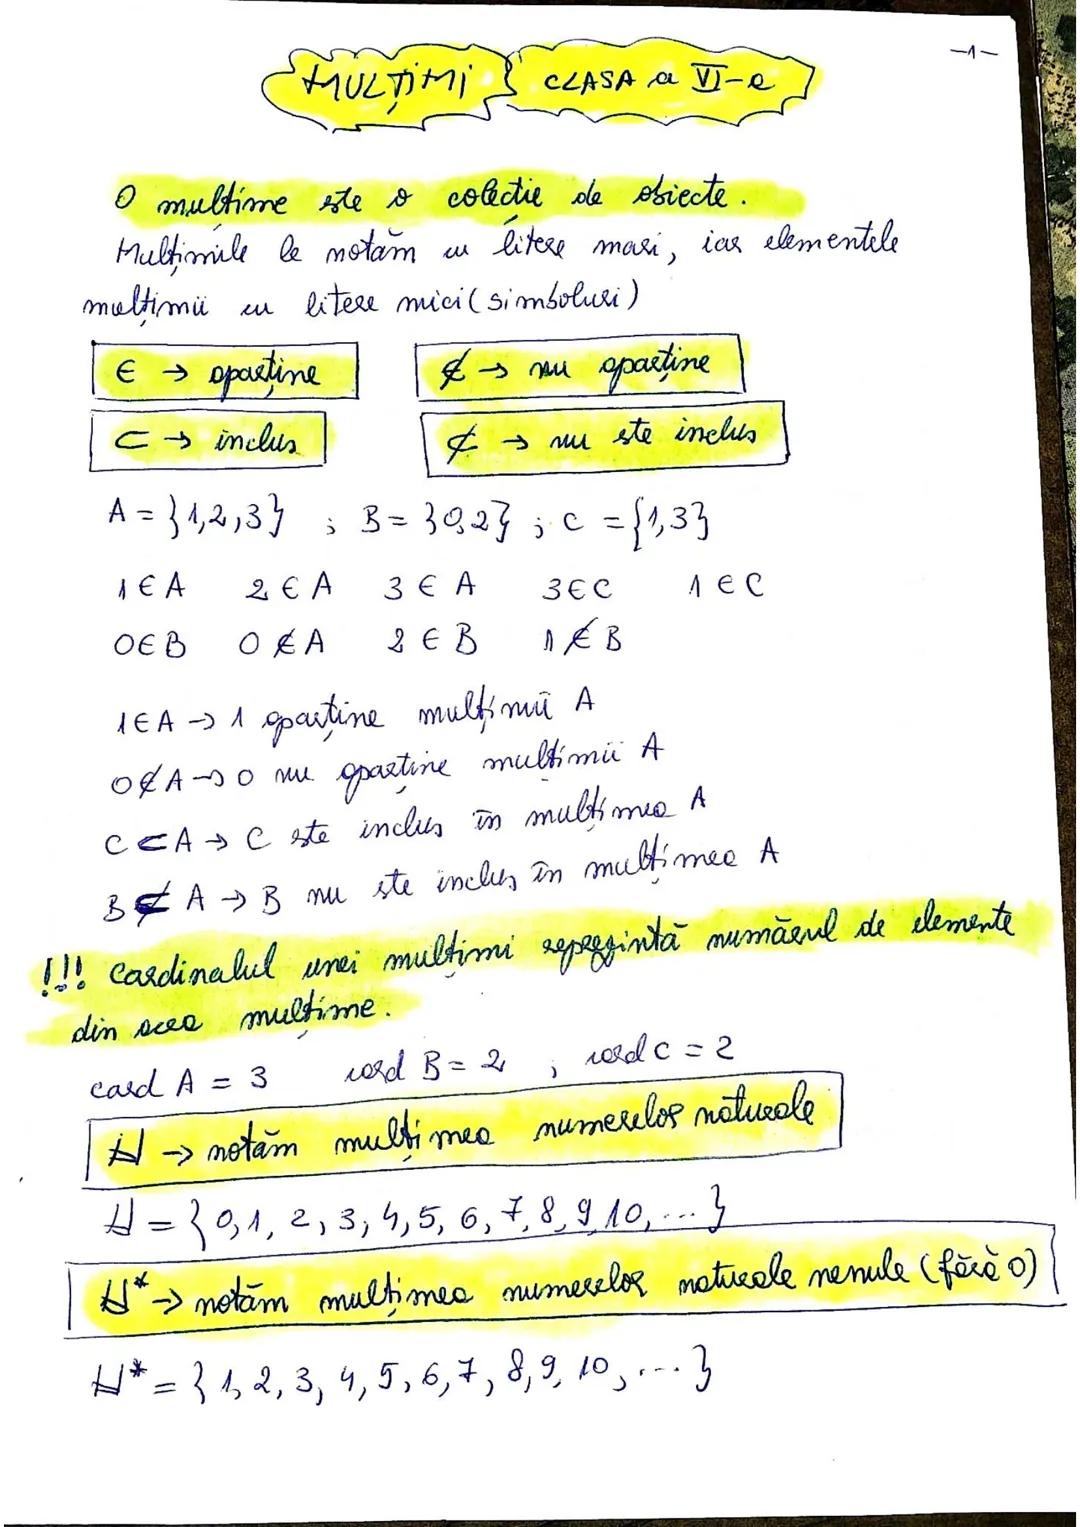 -1-
MULȚIMI CLASA a VI-a
O mulțime este o colecție de obiecte.
Mulțimile le notăm cu litere mari, iar elementele
mulțimii cu litere mici (simboluri)
∈ → aparține ∉ → nu aparține
⊂ → inclus ⊄ → nu este inclus
A = {1,2,3} ; B = {0,2} ; C = {1,3}
1 ∈ A 2 ∈ A 3 ∈ A 3 ∈ C 1 ∈ C
0 ∈ B 0 ∉ A 2 ∈ B 1 ∉ B
1 ∈ A → 1 aparține mulțimii A
0 ∉ A → 0 nu aparține mulțimii A
C ⊂ A → C este inclus în mulțimea A
B ⊄ A → B nu este inclus în mulțimea A
!!! Cardinalul unei mulțimi reprezintă numărul de elemente
din acea mulțime.
card A = 3 card B = 2 ; card C = 2
ℕ → notăm mulțimea numerelor naturale
ℕ = {0, 1, 2, 3, 4, 5, 6, 7, 8, 9, 10, ...}
ℕ* → notăm mulțimea numerelor naturale nenule (fără 0)
ℕ* = {1, 2, 3, 4, 5, 6, 7, 8, 9, 10, ...}